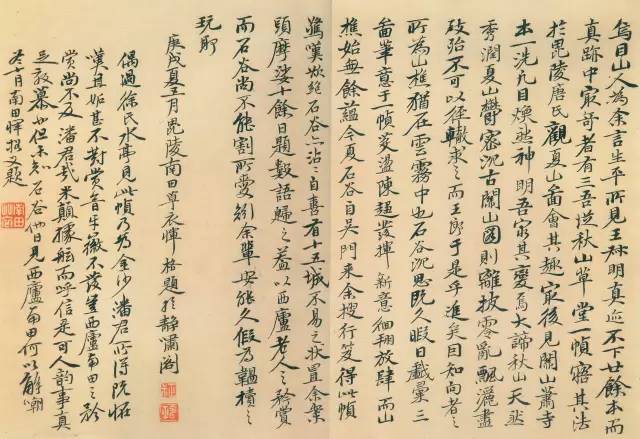 烏目山人為余言生平所見王叔明真迹不下廿餘本而
真跡中最奇者有三吾從秋山草堂一幀寤其法
於毘陵唐氏觀夏山圖會其趣最後見關山蕭寺
本一洗凡目煥然神明吾窮其變焉大諦秋山天然
秀潤夏山鬱密沉古關山圖則離披零亂飄灑盡
致殆不可以徑轍求之而王郎于是乎進矣因知向者之
所為山樵猶在雲霧中也石谷沉思既久暇日戲彙三
圖筆意于一幀蕩滌陳趨發揮新意徊翔放肆而山
樵始無餘蘊今夏石谷自吳門來余搜行笈得此幀
驚嘆欲絕石谷亦沾沾自喜有十五城不易之狀置余案
頭摩挲十餘日題數語歸之蓋以西廬老人之矜賞
而石谷尚不能割所愛矧余輩安能久假為韞櫝之
玩耶
庚戌夏五月毘陵南田草衣惲格題於靜嘯閣
偶過徐氏水亭見此幀乃為金沙潘君所得既怪
嘆且妬甚不對賞音牙徽不發豈西廬南田之矜
賞尚不及潘君哉米顛據舷而呼信是可人韻事真
足效慕也但未知石谷他日見西廬南田何以解嘲
冬十月南田惲格又題